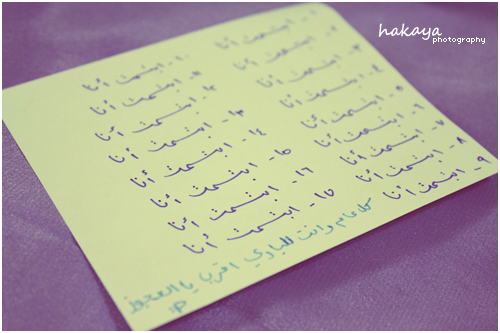 hakaya
photography
١- ابتسمت أنا
٢- ابتسمت أنا
٣- ابتسمت أنا
٤- ابتسمت أنا
٥- ابتسمت أنا
٦- ابتسمت أنا
٧- ابتسمت أنا
٨- ابتسمت أنا
٩- ابتسمت أنا
١٠- ابتسمت أنا
١١- ابتسمت أنا
١٢- ابتسمت أنا
١٣- ابتسمت أنا
١٤- ابتسمت أنا
١٥- ابتسمت أنا
١٦- ابتسمت أنا
ابتسمت أنا
كل عام وانت للباري اقرب يا العجوز
:p